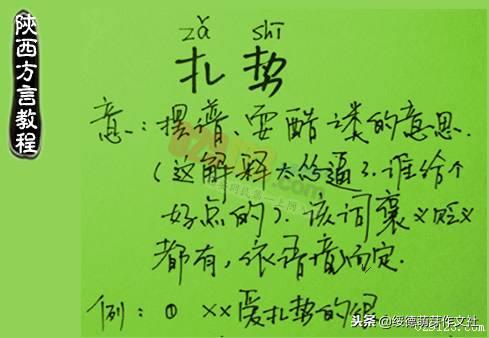 陝西方言教程
zǎ shī
扎势
意:摆谱、耍酷之类的意思.
(这解释太怂逼了.谁给个
好点的).该词褒义贬义
都有,依语境而定.
例:① ××爱扎势的很
头条 @绥德萌芽作文社